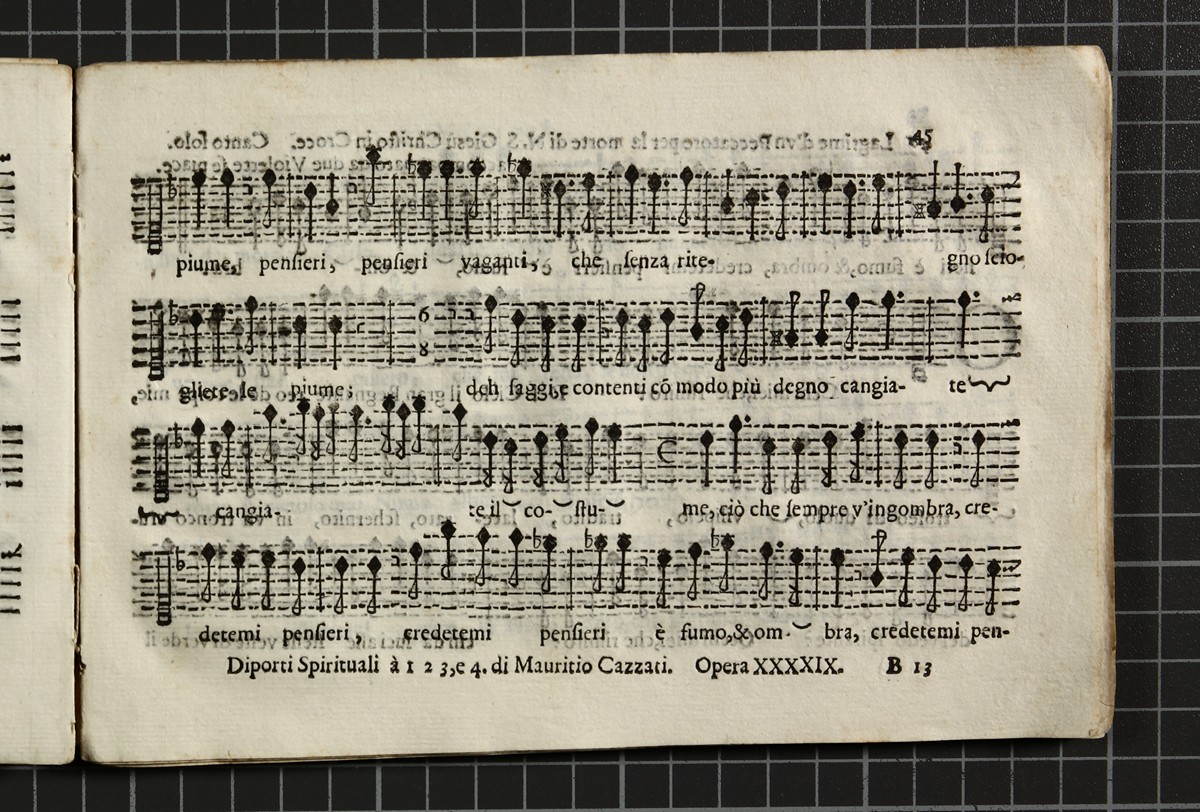 45
piume, penſieri, penſieri vaganti, che ſenza rite- gno ſcio-
gliete le piume; deh ſaggi,e contenti cõ modo più degno cangia- te
cangia- te il co- ſtu- me, ciò che ſempre v'ingombra, cre-
detemi penſieri, credetemi penſieri è fumo,& om- bra, credetemi pen-
Diporti Spirituali à 1 2 3,e 4. di Mauritio Cazzati. Opera XXXXIX. B 13